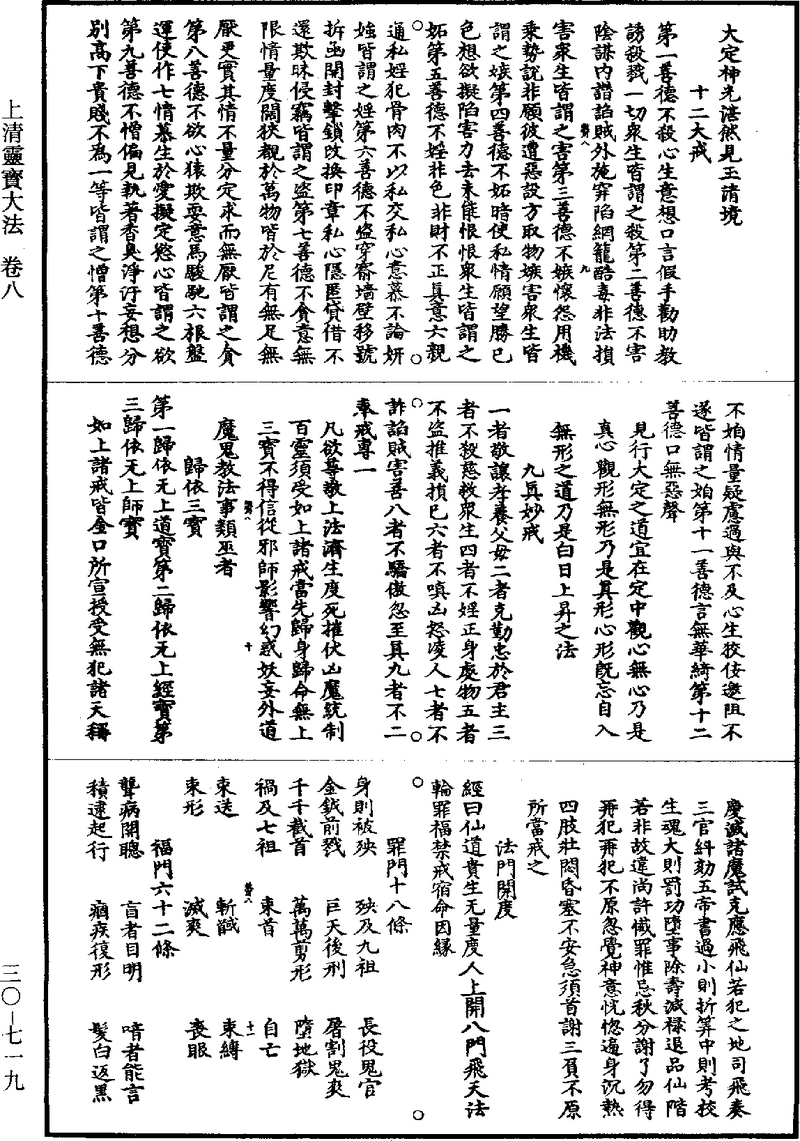 大定神光湛然見玉清境
十二大戒
第一善德不殺心生意想口言假手勸助教
誘殺戮一切衆生皆謂之殺第二善德不害
陰謀內譖諂賊外施穽陷網籠酷毒非法損
害衆生皆謂之害第三善德不嫉懷怨用機
乘勢說非願彼遭惡設方取物嫉害衆生皆
謂之嫉第四善德不妬暗使私情願望勝已
色想欲擬陷害力去未能恨恨衆生皆謂之
妬第五善德不婬非色非財不正真意六親
通私婬犯骨肉不以私交私心意慕不論妍
媸皆謂之婬第六善德不盜穿窬墻壁移號
拆函開封擊鎖改換印章私心隱匿貸借不
還欺昧侵竊皆謂之盜第七善德不貪意無
限情量度闊狹觀於萬物皆於尼有無足無
厭更實其情不量分定求而無厭皆謂之貪
第八善德不欲心猿欺耍意馬駿馳六根盤
運使作七情慕生於愛擬定慾心皆謂之欲
第九善德不憎偏見執著香臭淨汙妄想分
別高下貴賤不爲一等皆謂之憎第十善德
不妒情量疑慮過與不及心生狡佞邀阻不
遂皆謂之妒第十一善德言無華綺第十二
善德口無惡聲
見行大定之道宜在定中觀心無心乃是
真心觀形無形乃是真形心形既忘自入
無形之道乃是白日上昇之法
九真妙戒
一者敬讓孝養父母二者克勤忠於君主三
者不殺慈救衆生四者不婬正身處物五者
不盜推義損已六者不嗔凶怒凌人七者不
詐諂賊害善八者不驕傲忽至真九者不二
奉戒專一
凡欲尋敬上法濟生度死摧伏凶魔統制
百靈須受如上諸戒當先歸身歸命無上
三寶不得信從邪師影響幻惑妖妄外道
魔鬼教法事類巫者
歸依三寶
第一歸依无上道寶第二歸依无上經寶第
三歸依无上師寶
如上諸戒皆金口所宣授受無犯諸天稱
慶滅諸魔試克應飛仙若犯之地司飛奏
三官糾劾五帝書過小則折筭中則考校
生魂大則罰功墮事除壽減祿退品仙階
若非故違尚許懺罪惟忌秋分謝了勿得
再犯再犯不原忽覺神意恍惚遍身沉熱
四肢壯悶昏塞不安急須首謝三頁不原
所當戒之
法門開度
經曰仙道貴生无量度人上開八門飛天法
輪罪福禁戒宿命因緣
罪門十八條
身則被殃 殃及九祖 長役鬼官
金鉞前戮 巨天後刑 屠割鬼爽
千千截首 萬萬剪形 墮地獄
禍及七祖 束首 自亡
束送 斬馘 束縛
束形 滅爽 喪眼
福門六十二條
聾病開聰 盲者目明 喑者能言
積逮起行 痼疾復形 髮白返黑
上清靈寶大法 卷八
三〇—七一九